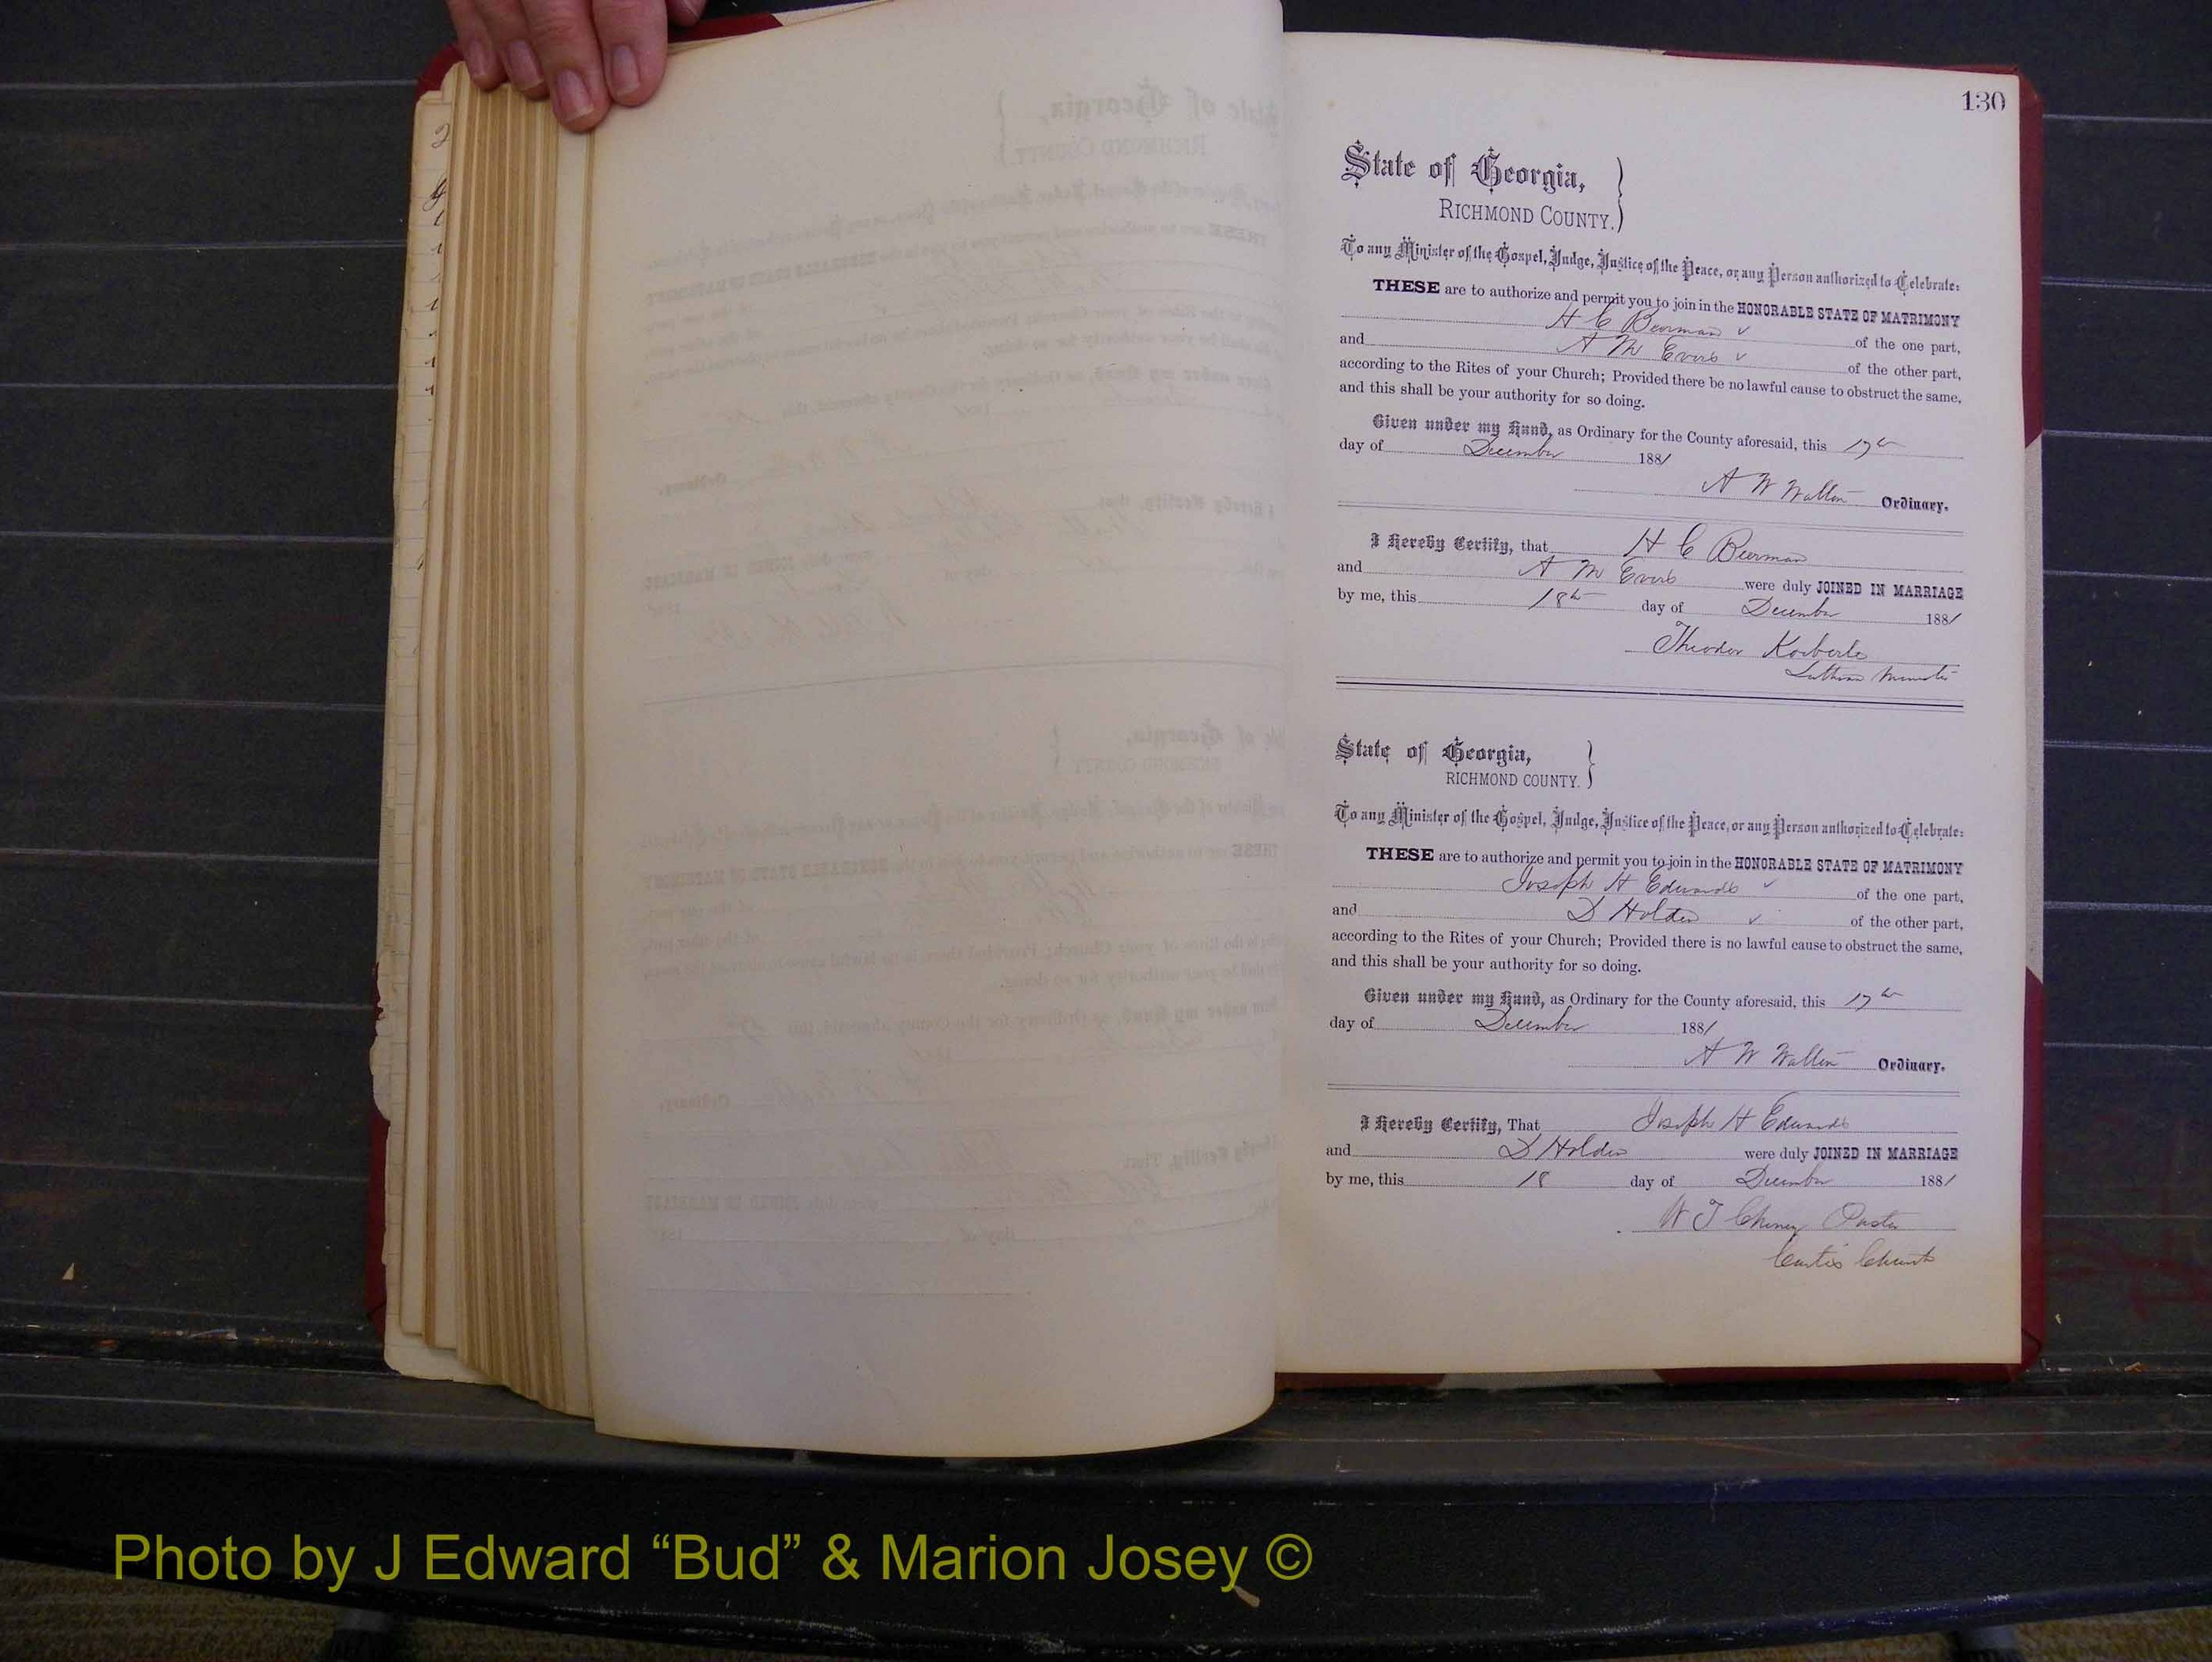 130
State of Georgia,
RICHMOND COUNTY.
To any Minister of the Gospel, Judge, Justice of the Peace, or any Person authorized to Celebrate:
THESE are to authorize and permit you to join in the HONORABLE STATE OF MATRIMONY
H C Beerman of the one part,
and A M Evers of the other part,
according to the Rites of your Church; Provided there be no lawful cause to obstruct the same,
and this shall be your authority for so doing.
Given under my Hand, as Ordinary for the County aforesaid, this 17th
day of December 1881
A W Walton Ordinary.
I Hereby Certify, that H C Beerman
and A M Evers were duly JOINED IN MARRIAGE
by me, this 18th day of December 1881
Theodor Koerberle
Lutheran Minister
State of Georgia,
RICHMOND COUNTY.
To any Minister of the Gospel, Judge, Justice of the Peace, or any Person authorized to Celebrate:
THESE are to authorize and permit you to join in the HONORABLE STATE OF MATRIMONY
Joseph H Edwards of the one part,
and D Holden of the other part,
according to the Rites of your Church; Provided there is no lawful cause to obstruct the same,
and this shall be your authority for so doing.
Given under my Hand, as Ordinary for the County aforesaid, this 17th
day of December 1881
A W Walton Ordinary.
I Hereby Certify, That Joseph H Edwards
and D Holden were duly JOINED IN MARRIAGE
by me, this 18 day of December 1881
W T Cheney Pastor
Curtis Church
Photo by J Edward “Bud” & Marion Josey ©